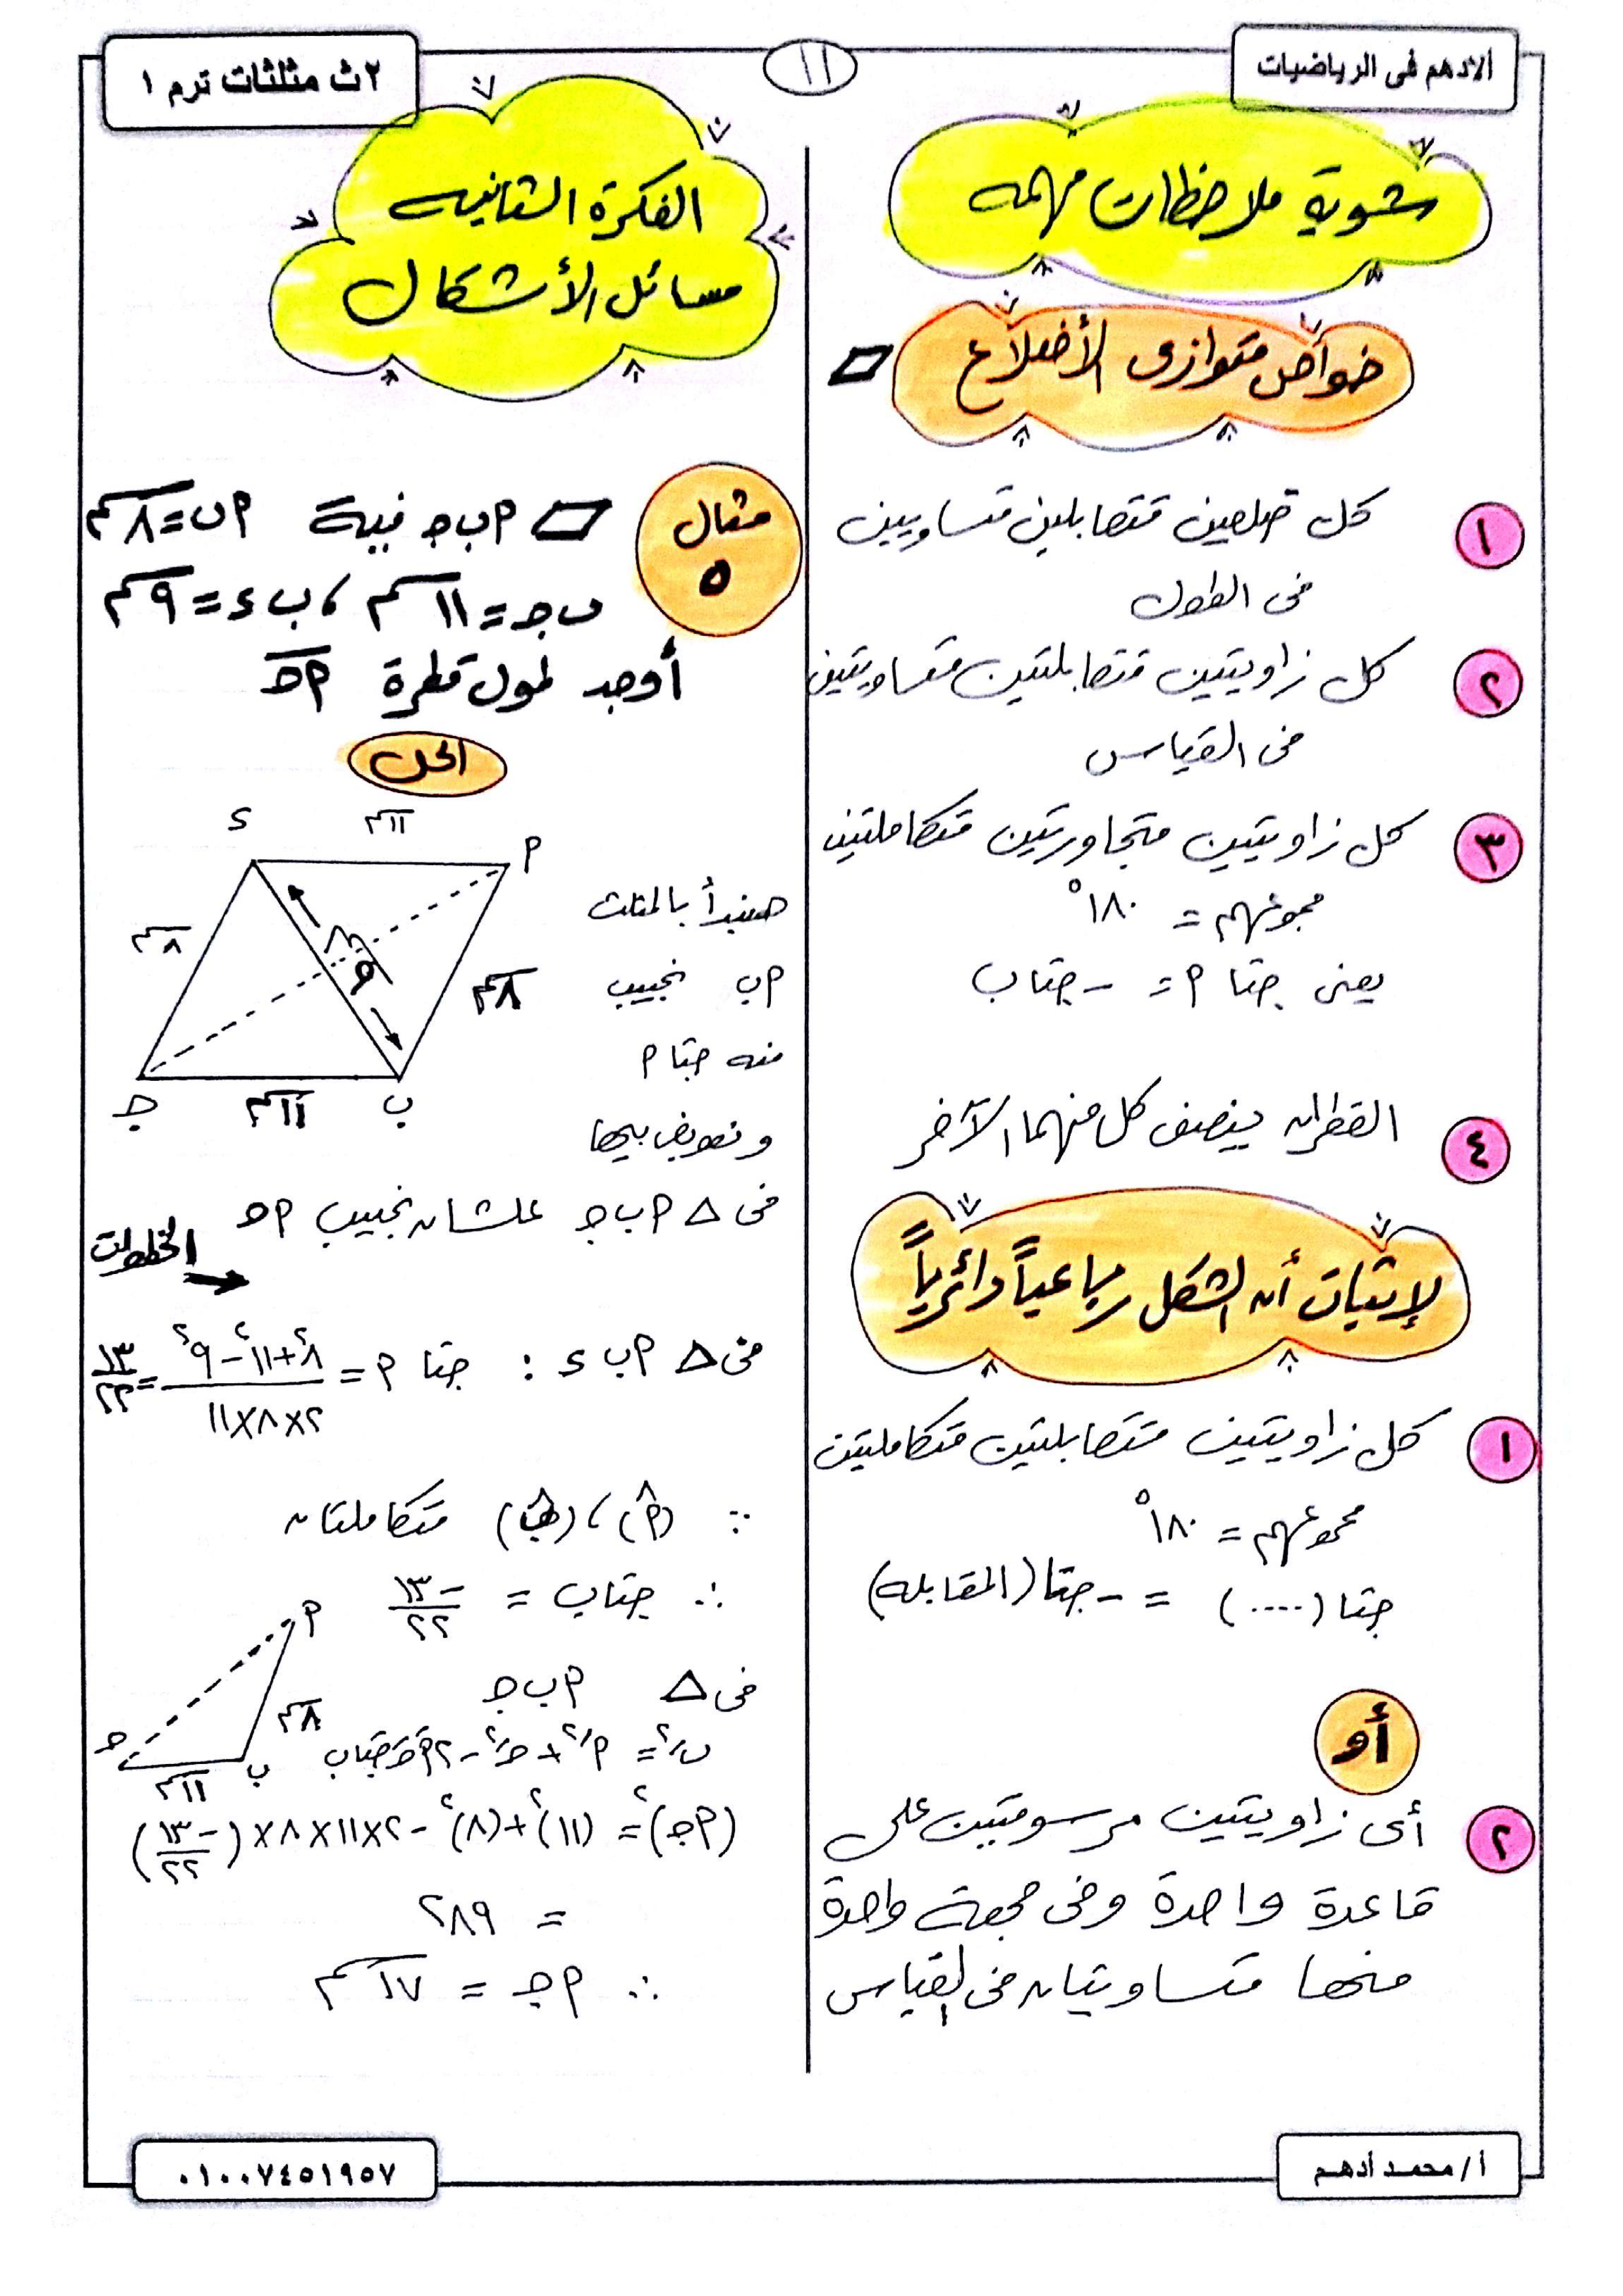 الادهم فى الرياضيات
١١
٢ث مثلثات ترم ١
شوية ملاحظات مهمه
خواص متوازى الأضلاع
١ كل ضلعين متقابلين متساويين
فى الطول
٢ كل زاويتين متقابلتين متساويتين
فى القياس
٣ كل زاويتين متجاورتين متكاملتين
مجموعهم = ١٨٠°
يعنى جتا م = - جتاب
٤ القطران ينصف كل منهما الآخر
لإثبات أن الشكل رباعياً دائرياً
١ كل زاويتين متقابلتين متكاملتين
مجموعهم = ١٨٠°
جتا (....) = - جتا (المقابله)
أو
٢ أى زاويتين مرسومتين على
قاعدة واحدة وفى جهة واحدة
منها متساويتان فى القياس
الفكرة الثانيه
مسائل الأشكال
مثال ٥
▱ م ب ج فيه م ب = ٨سم
ب ج = ١١سم ، ب ء = ٩سم
أوجد طول قطرة م ج
الحل
ء ١١سم م
٨سم ٩سم ٨سم
ج ١١سم ب
هنبدأ بالمثلث
م ب نجيب
منه جتا م
ونعوض بيها
فى △ م ب ج علشان نجيب م ج
الخطوات
فى △ م ب ء : جتا م = (٨² + ١١² - ٩²) / (٢×٨×١١) = ١٣/٢٢
∵ (م̂) ، (ب̂) متكاملتان
∴ جتاب = -١٣/٢٢
فى △ م ب ج
م
٨سم
ج ١١سم ب
بَ² = مَ² + جَ² - ٢مَ جَ جتاب
(م ج)² = (١١)² + (٨)² - ٢×١١×٨×(-١٣/٢٢)
= ٢٨٩
∴ م ج = ١٧سم
أ/ محمد أدهم
٠١٠٠٧٤٥١٩٥٧